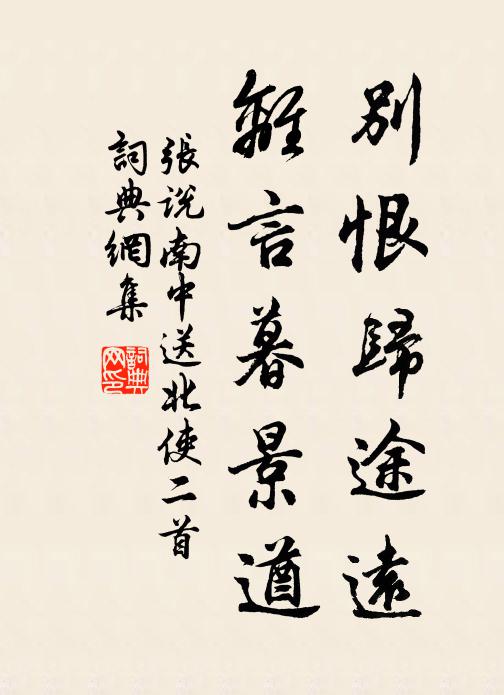 別恨歸途遠
離言暮景遒
張説南中送北使二首
詞典網集
詞典网印